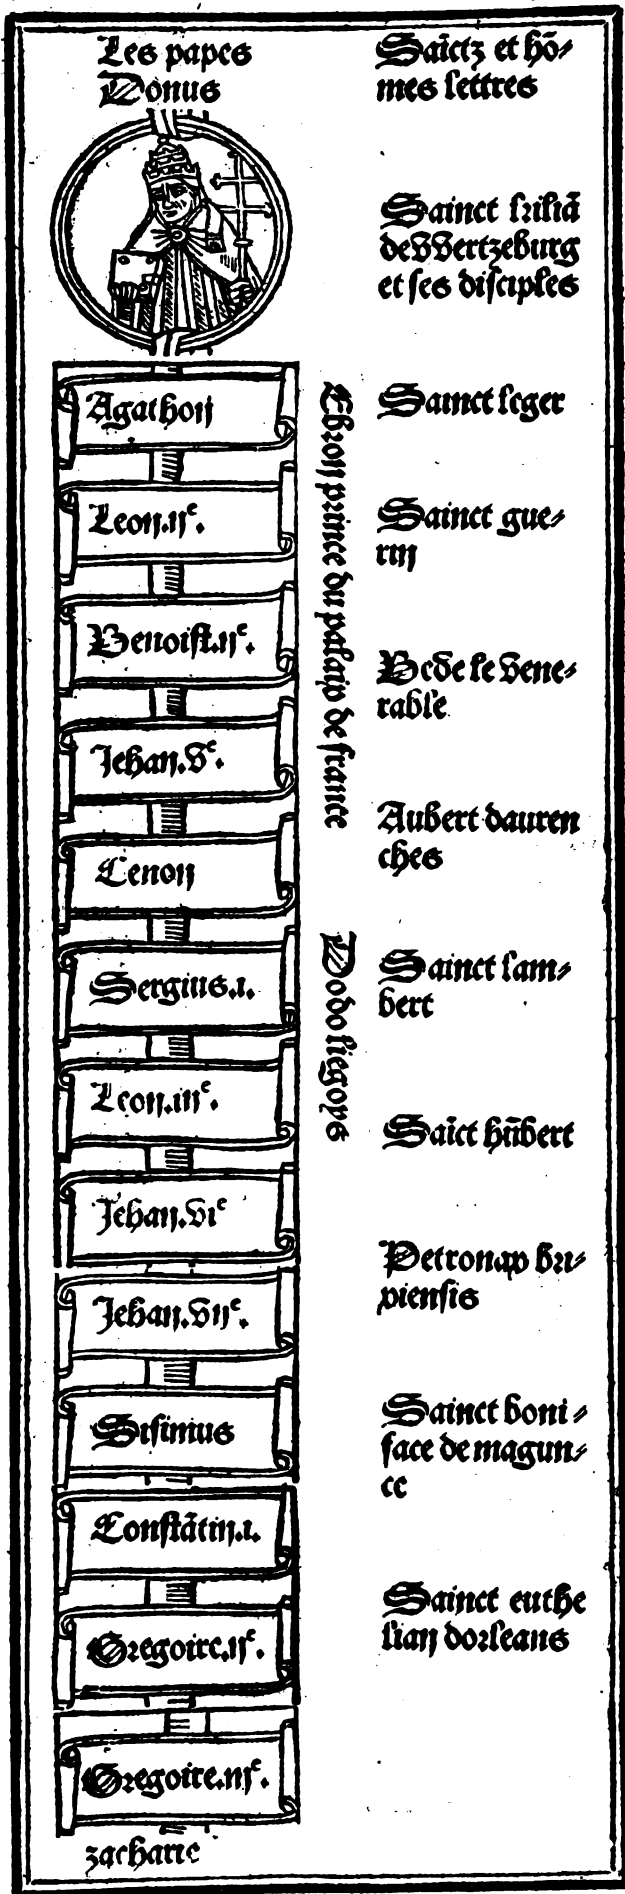 Les papes
Donus
Agathon
Leon.ii^e.
Benoist.ii^e.
Jehan.v^e.
Cenon
Sergius.i.
Leon.iii^e.
Jehan.vi^e
Jehan.vii^e.
Sisimus
Constãtin.i.
Gregoire.ii^e.
Gregoire.iii^e.
zacharie
Ebron prince du palaix de france
Dodo liegoys
Saĩctz et hõ⸗
mes lettres
Sainct kiliã
de VVertzeburg
et ses disciples
Sainct leger
Sainct gue⸗
rin
Bede le vene⸗
rable
Aubert dauren
ches
Sainct lam⸗
bert
Saĩct hũbert
Petronax bri⸗
xiensis
Sainct boni⸗
face de magun⸗
ce
Sainct euthe
lian dorleans